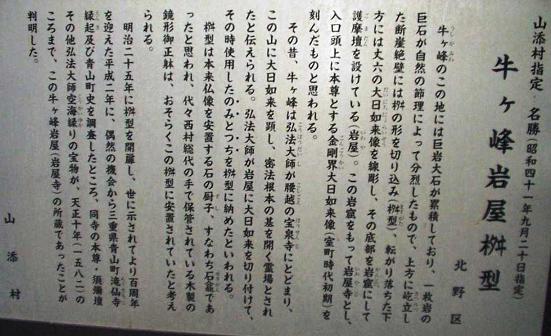 山添村指定 名勝(昭和四十一年九月二十日指定)
牛ヶ峰岩屋桝型
北野区
牛ヶ峰のこの地には巨岩大石が累積しており、一枚岩の
巨石が自然の節理によって分烈したもので、上方に屹立し
た断崖絶壁には桝の形を切り込み(桝型)転がり落ちた下
方には丈六の大日如来像を線彫し、その底部を岩窟にして
護摩壇を設けている(岩屋)。この岩窟をもって岩屋寺とし、
入口頭上に本尊とする金剛界大日如来像(室町時代初期)を
刻んだものと思われる。
その昔、牛ヶ峰は弘法大師が腰越の宝泉寺にとどまり、
この山に大日如来を顕し、密法根本の基を開く霊場とされ
たと伝えられる。弘法大師が岩屋に大日如来を切り付けて、
その時使用したのみとつちを桝型に納めたといわれる。
桝型は本来仏像を安置する石の厨子、すなわち石龕であ
ったと思われ、代々西村総代の手で保管されている木製の
鏡形御正躰は、おそらくこの桝型に安置されていたと考え
られる。
明治二十五年に桝型を開扉し、世に示されてより百周年
を迎えた平成二年に、偶然の機会から三重県青山町滝仙寺
縁起及び青山町史を調査したところ、同寺の本尊・須彌壇
その他弘法大師空海縁りの宝物が、天正十年(一五八二)の
ころまで、この牛ヶ峰岩屋(岩屋寺)の所蔵であったことが
判明した。
山添村